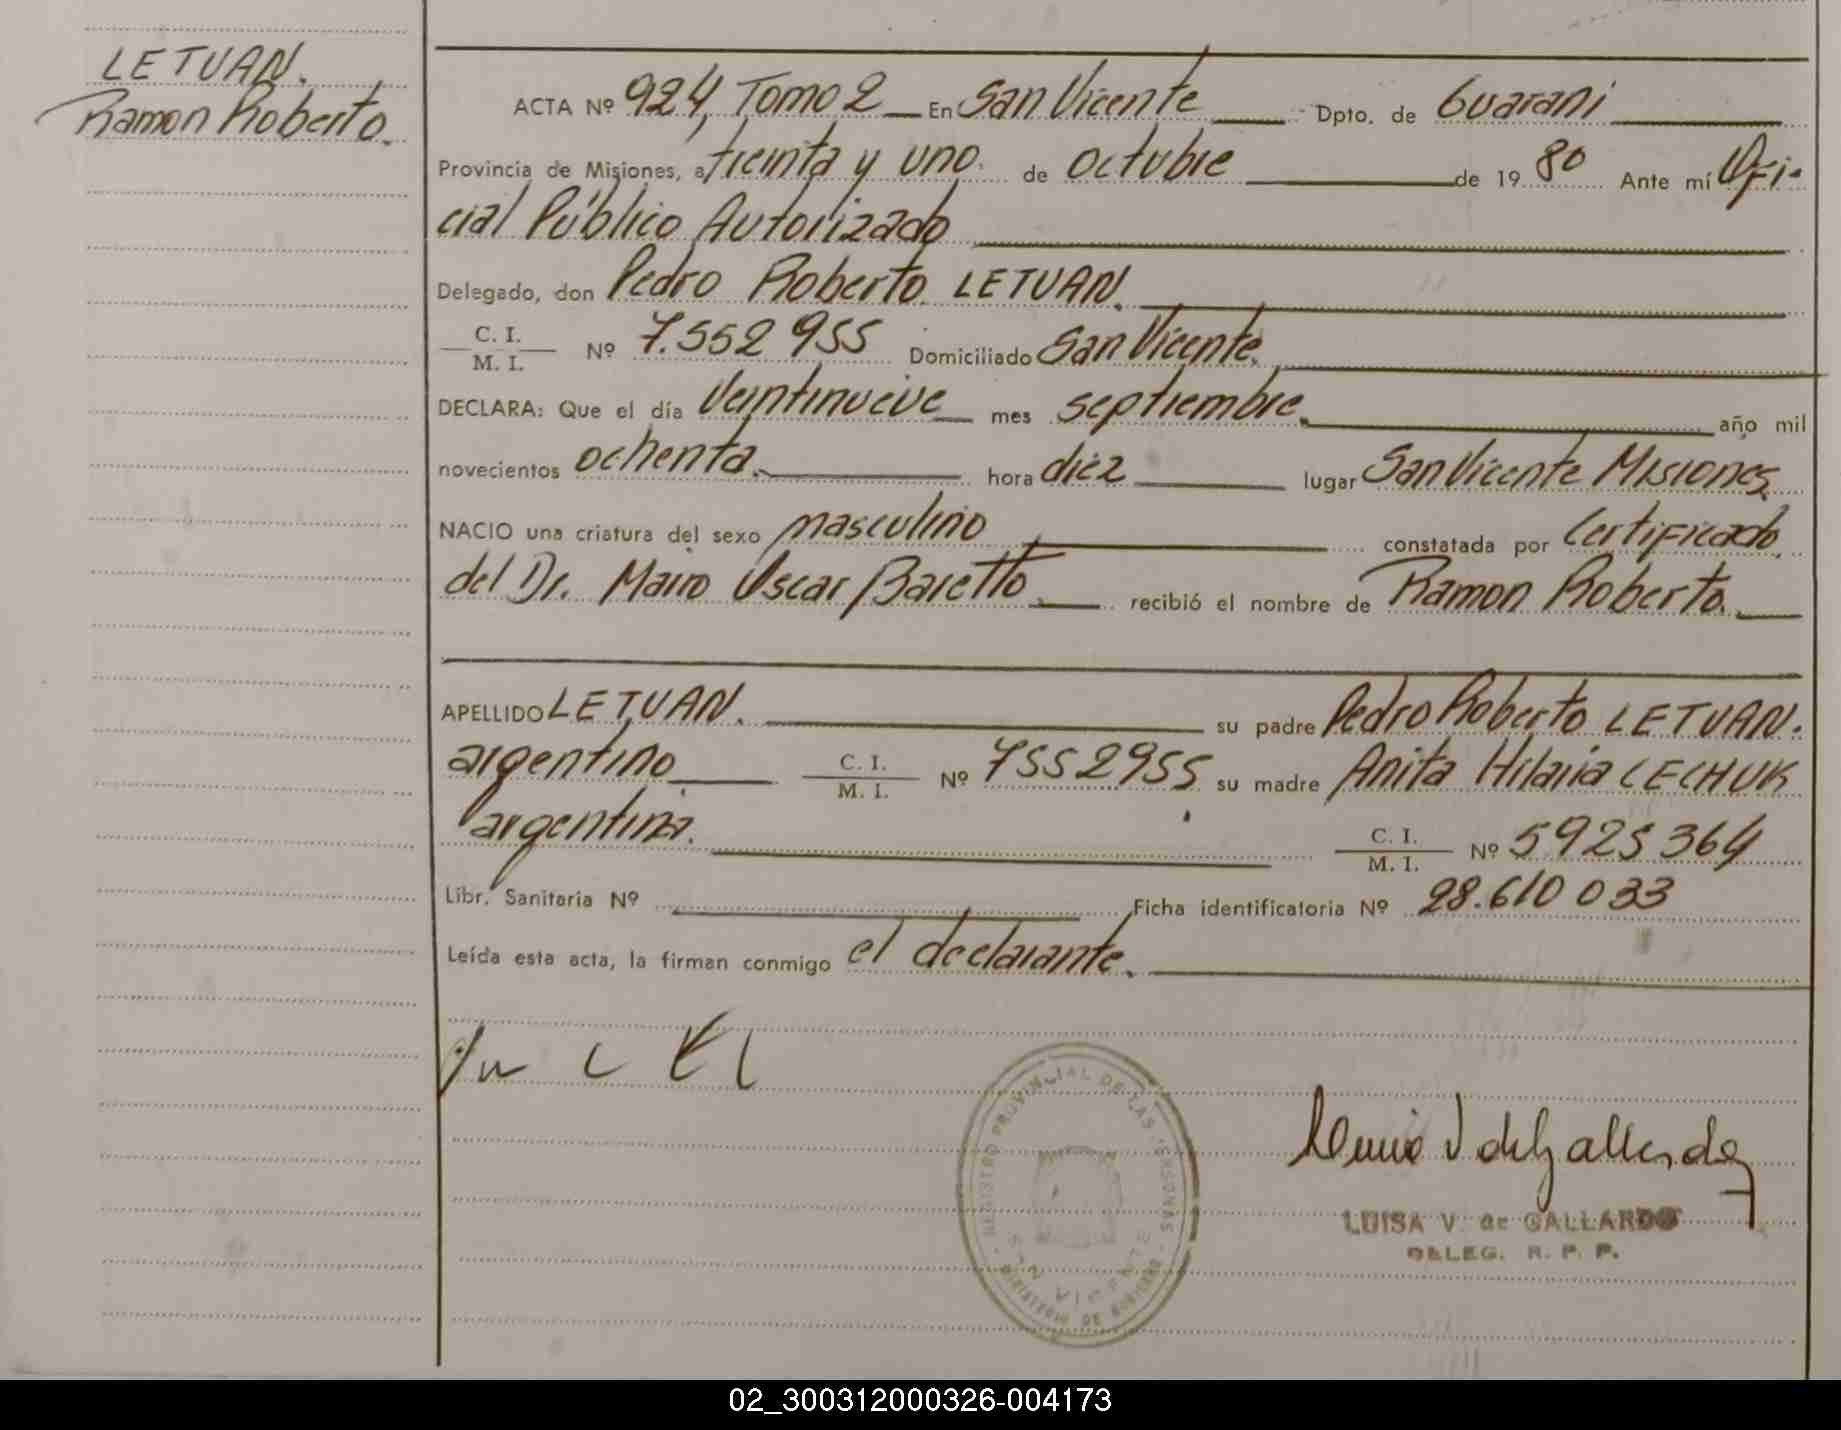 LETUAN.
Ramon Roberto.
ACTA Nº 924, Tomo 2 En San Vicente Dpto. de Guarani
Provincia de Misiones, a treinta y uno. de octubre de 19 80 Ante mí Ofi-
cial Público Autorizado
Delegado, don Pedro Roberto LETUAN.
C. I.
M. I. Nº 7.552 955 Domiciliado San Vicente.
DECLARA: Que el día veintinueve mes septiembre. año mil
novecientos ochenta. hora diez lugar San Vicente Misiones.
NACIO una criatura del sexo masculino constatada por Certificado
del Dr. Mario Oscar Baretto recibió el nombre de Ramon Roberto.
APELLIDO LETUAN. su padre Pedro Roberto LETUAN.
argentino C. I.
M. I. Nº 7552955 su madre Anita Hilaria LECHUK
argentina. C. I.
M. I. Nº 5925364
Libr. Sanitaria Nº Ficha identificatoria Nº 28.610 033
Leída esta acta, la firman conmigo el declarante.
REGISTRO PROVINCIAL DE LAS PERSONAS
SAN VICENTE
MINISTERIO DE GOBIERNO
LUISA V. de GALLARDO
DELEG. R. P. P.
02_300312000326-004173